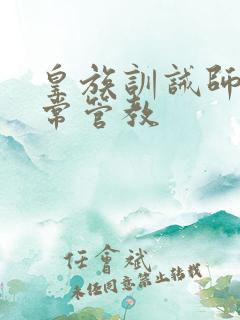 皇族訓誡師
常管教
任會斌
未经同意禁止转载